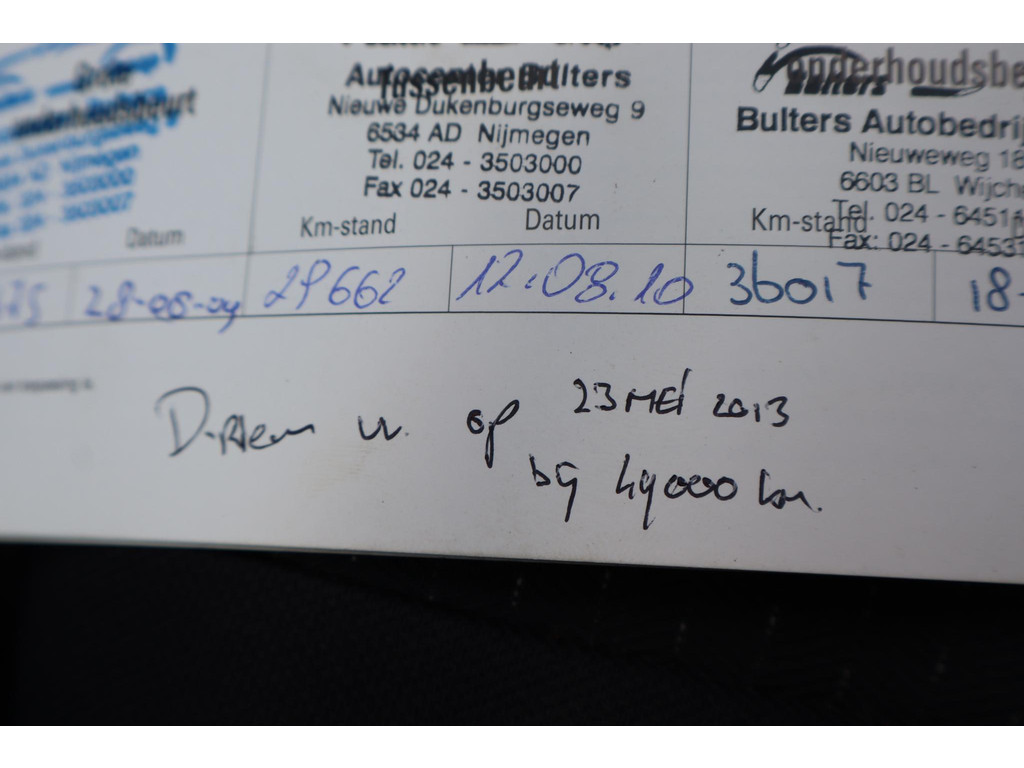 onderhoudsbeurt
Datum
28-06-04
Autocenter Bulters
Tussenbeurt
Nieuwe Dukenburgseweg 9
6534 AD Nijmegen
Tel. 024 - 3503000
Fax 024 - 3503007
Km-stand Datum
29662 12.08.10
onderhoudsbe
Bulters
Bulters Autobedrij
Nieuweweg 18
6603 BL Wijche
Tel. 024 - 6451
Km-stand
Fax: 024 - 6453
36017 18-
D-riem w. op 23 MEI 2013
bij 49000 km.